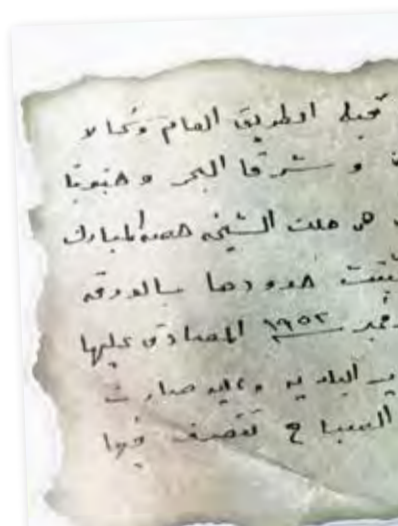 قبله الطريق العام وشمالا
و شرقا البحر و جنوبا
هي ملك الشيخه حصه المبارك
حدودها بالورقه
١٩٥٢ المصادق عليها
البلديه وعليه صارت
الصباح تتصرف فيها